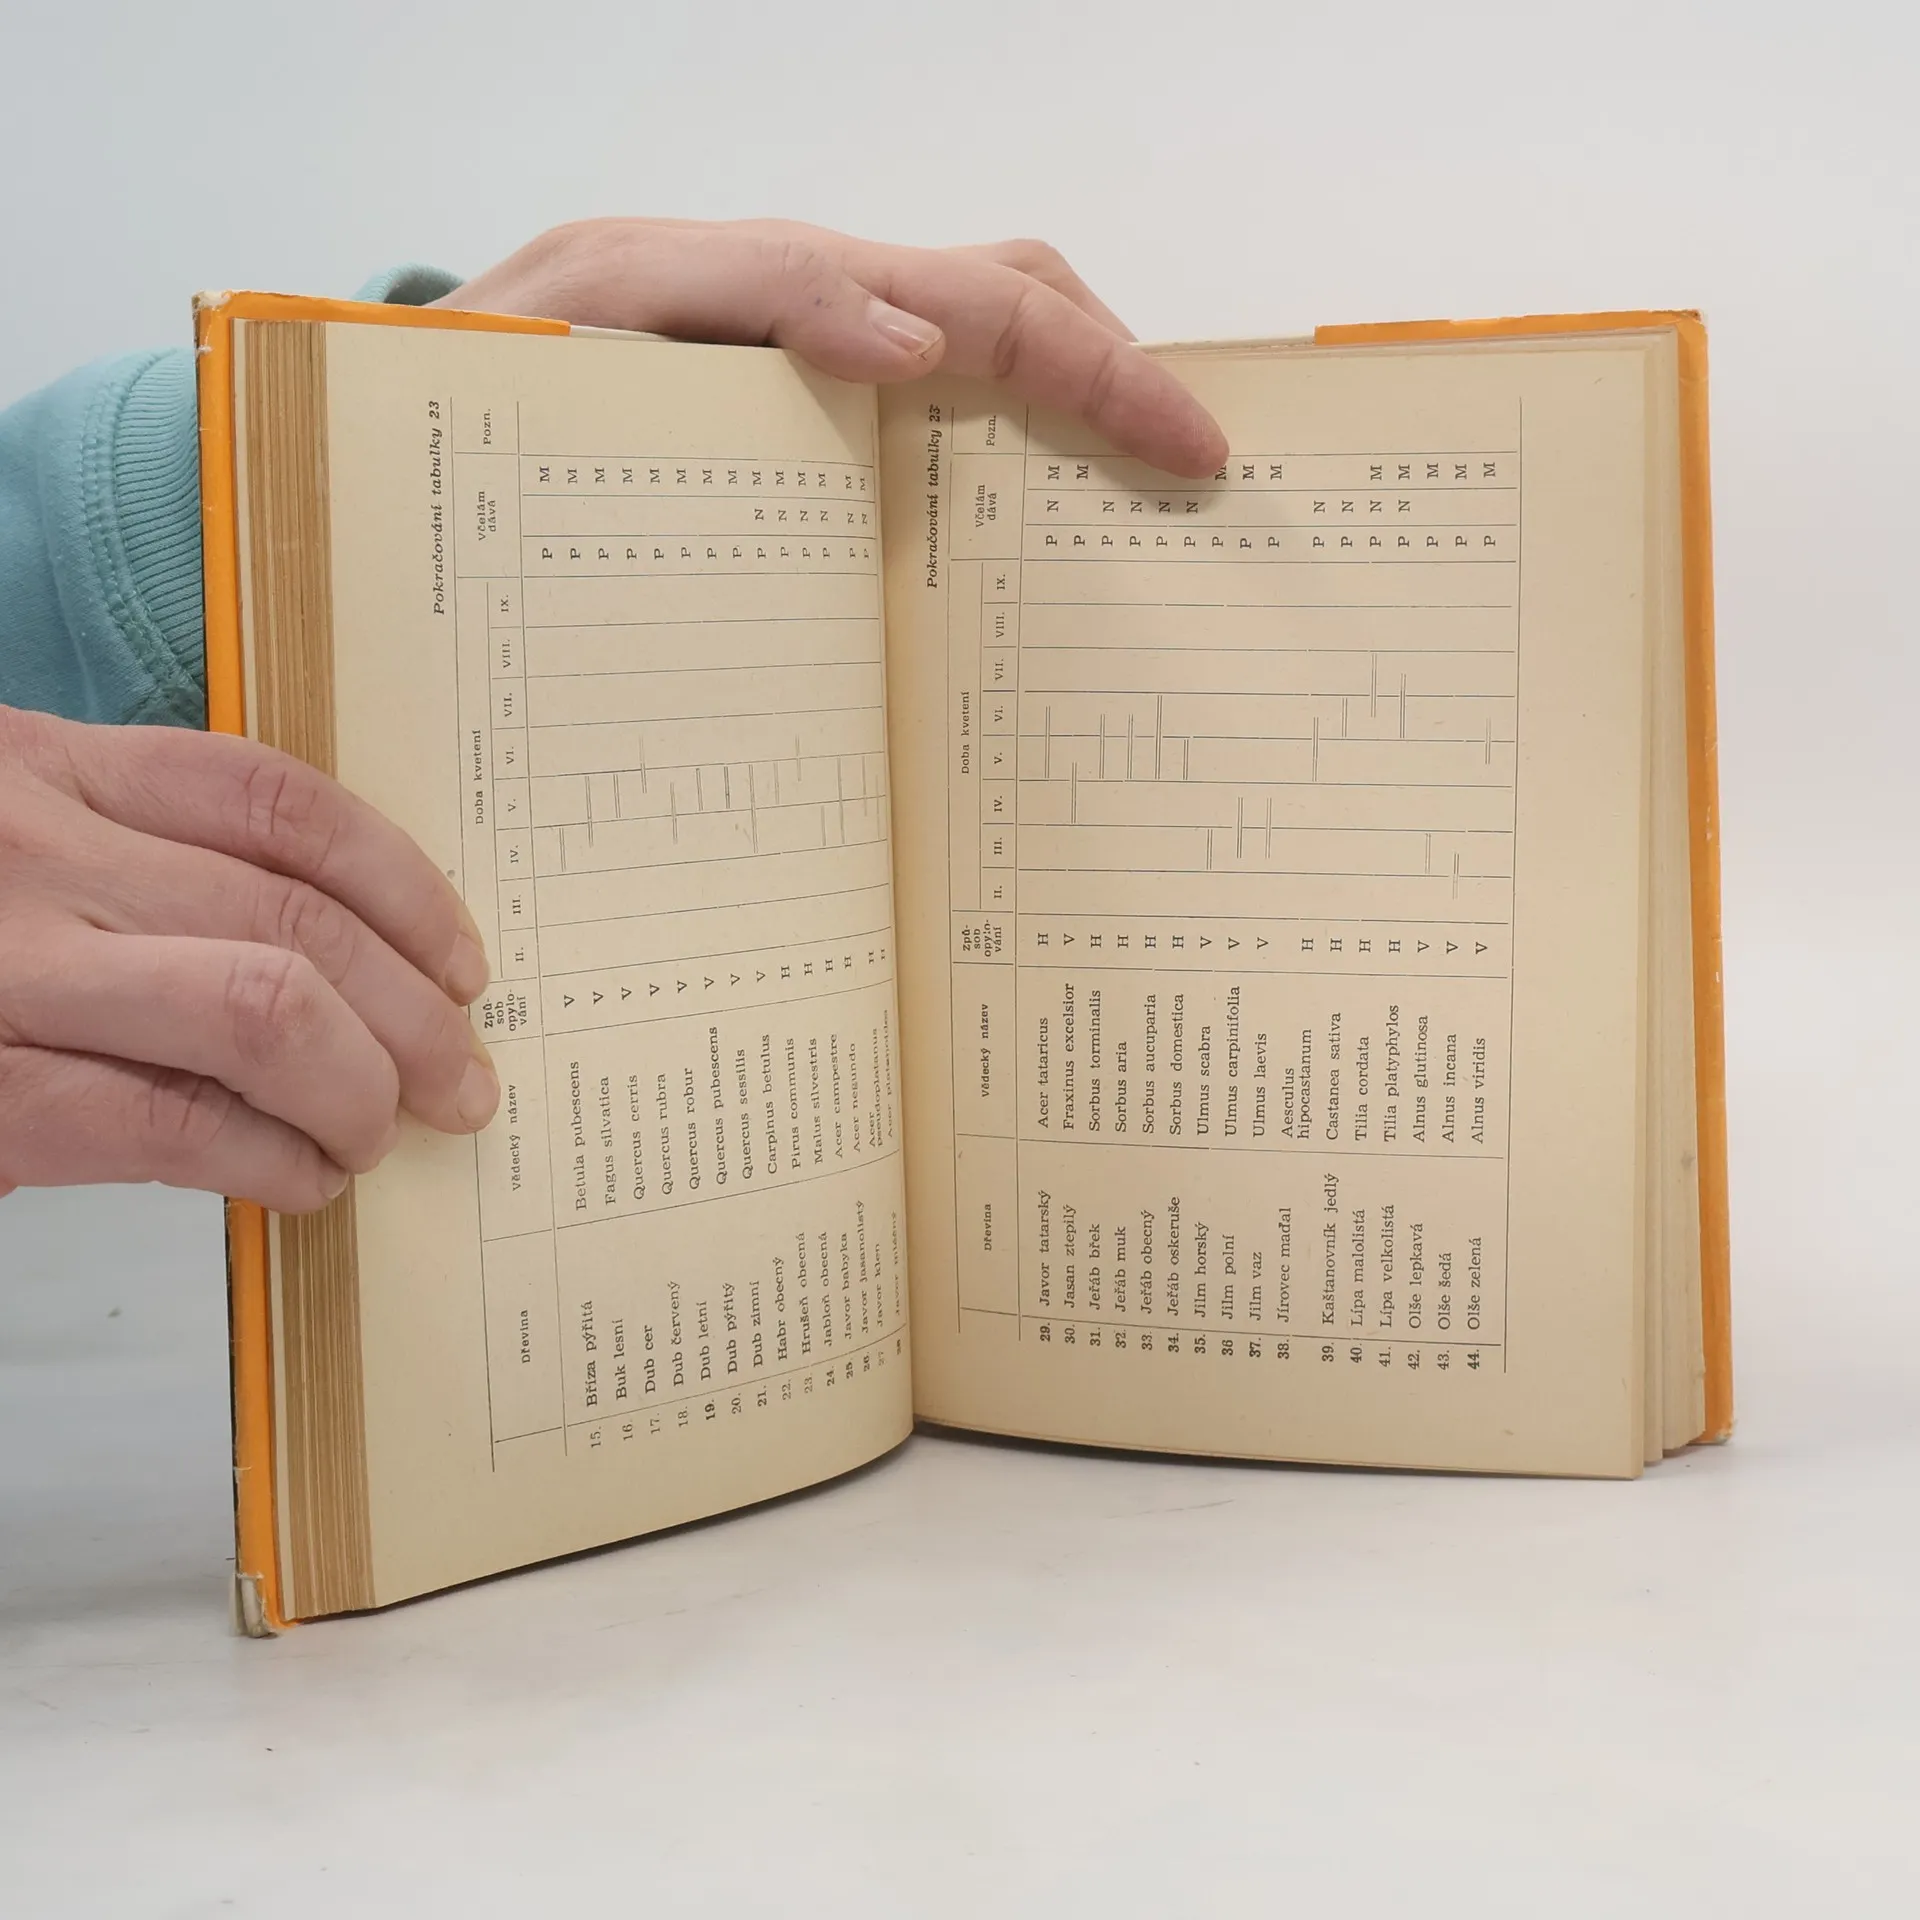 Pokračování tabulky 23
Dřevina Vědecký název Způ- sob opylo- vání Doba kvetení Včelám dává Pozn.
II. III. IV. V. VI. VII. VIII. IX.
15. Bříza pýřitá Betula pubescens V P M
16. Buk lesní Fagus silvatica V P M
17. Dub cer Quercus cerris V P M
18. Dub červený Quercus rubra V P M
19. Dub letní Quercus robur V P M
20. Dub pýřitý Quercus pubescens V P M
21. Dub zimní Quercus sessilis V P M
22. Habr obecný Carpinus betulus V P M
23. Hrušeň obecná Pirus communis H P N M
24. Jabloň obecná Malus silvestris H P N M
25. Javor babyka Acer campestre H P N M
26. Javor jasanolistý Acer negundo H P N M
27 Javor klen Acer pseudoplatanus H P N M
28 Javor mléčný Acer platanoides H P N M
Pokračování tabulky 23
Dřevina Vědecký název Způ- sob opylo- vání Doba kvetení Včelám dává Pozn.
II. III. IV. V. VI. VII. VIII. IX.
29. Javor tatarský Acer tataricus H P N M
30. Jasan ztepilý Fraxinus excelsior V P M
31. Jeřáb břek Sorbus torminalis H P N
32. Jeřáb muk Sorbus aria H P N
33. Jeřáb obecný Sorbus aucuparia H P N
34. Jeřáb oskeruše Sorbus domestica H P N
35. Jilm horský Ulmus scabra V P M
36 Jilm polní Ulmus carpinifolia V P M
37. Jilm vaz Ulmus laevis V P M
38. Jírovec maďal Aesculus
hipocastanum H P N
39. Kaštanovník jedlý Castanea sativa H P N
40. Lípa malolistá Tilia cordata H P N M
41. Lípa velkolistá Tilia platyphylos H P N M
42. Olše lepkavá Alnus glutinosa V P M
43. Olše šedá Alnus incana V P M
44. Olše zelená Alnus viridis V P M